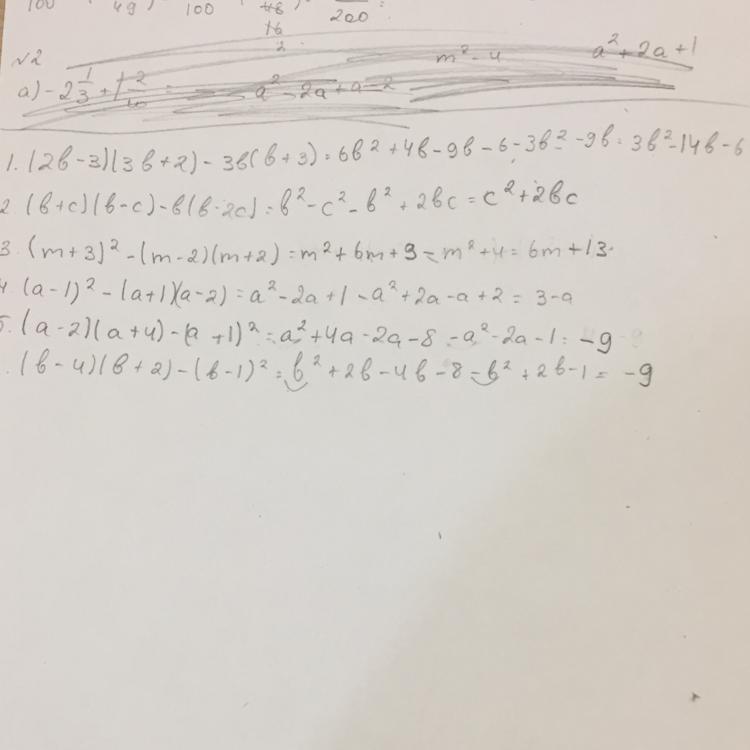 100 49) 100 46 200
16
2
№2 m² - 4 a² + 2a + 1
a) - 2 1/3 + a² - 2a + a - 2
1. (2b - 3)(3b + 2) - 3b(b + 3) = 6b² + 4b - 9b - 6 - 3b² - 9b = 3b² - 14b - 6
2. (b + c)(b - c) - b(b - 2c) = b² - c² - b² + 2bc = c² + 2bc
3. (m + 3)² - (m - 2)(m + 2) = m² + 6m + 9 - m² + 4 = 6m + 13
4. (a - 1)² - (a + 1)(a - 2) = a² - 2a + 1 - a² + 2a - a + 2 = 3 - a
5. (a - 2)(a + 4) - (a + 1)² = a² + 4a - 2a - 8 - a² - 2a - 1 = -9
. (b - 4)(b + 2) - (b - 1)² = b² + 2b - 4b - 8 - b² + 2b - 1 = -9